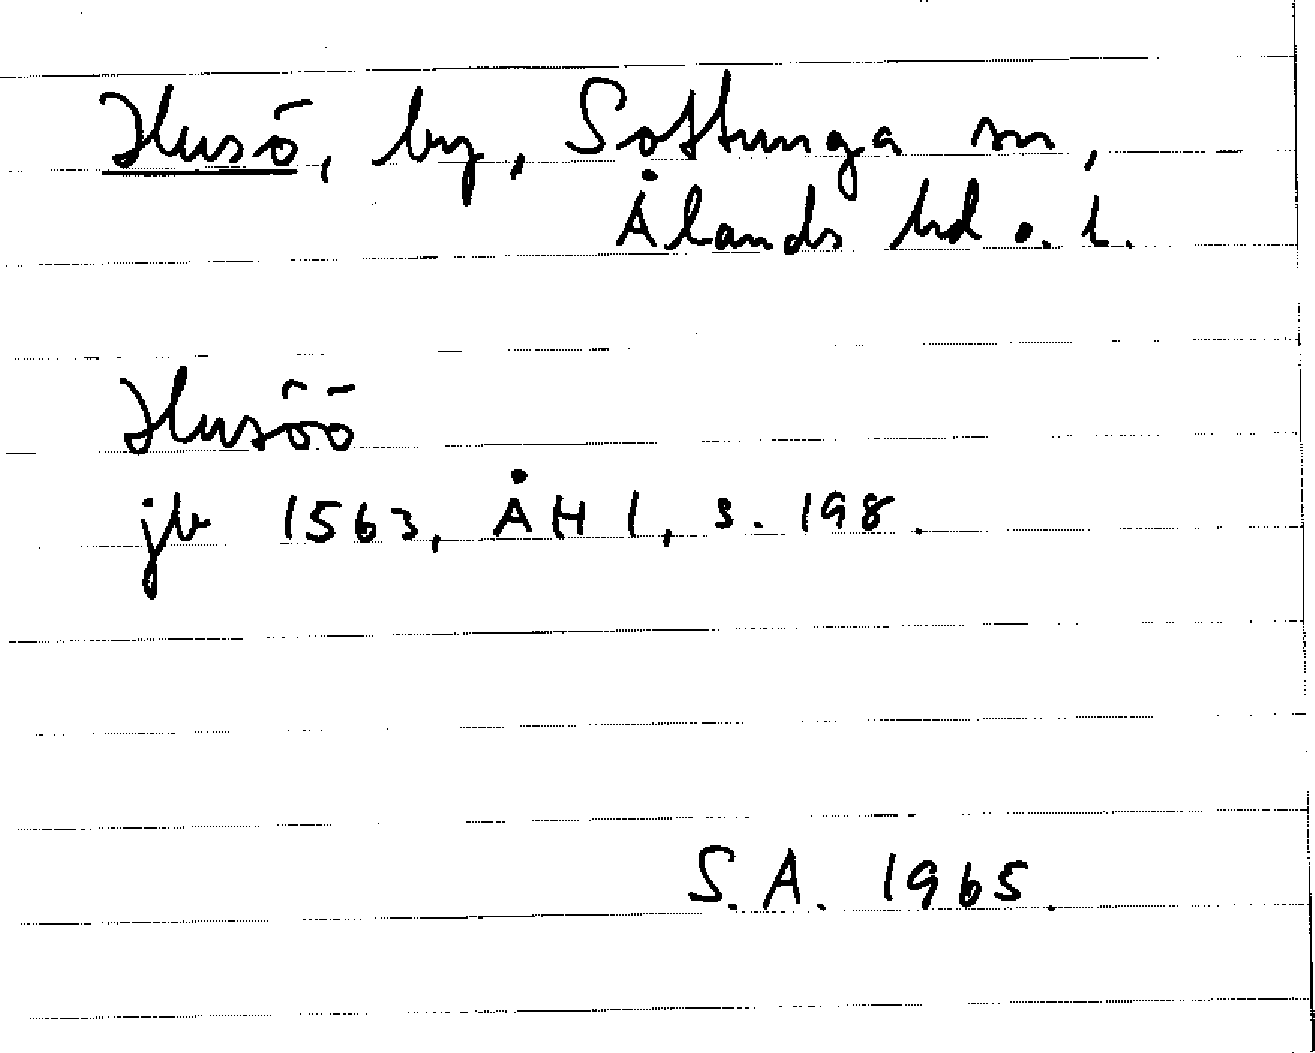 Husö, by, Sottunga sn,
Ålands hd o. l.
Husöö
jb 1563, ÅH 1, s. 198.
S.A. 1965.